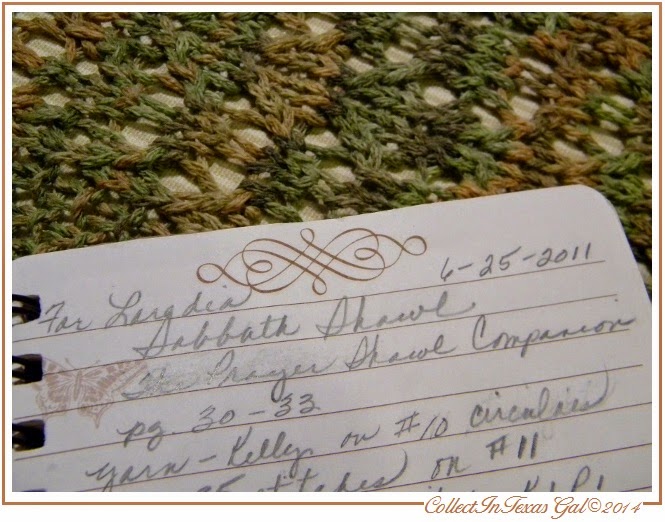 6-25-2011
For Laradia
Sabbath Shawl
The Prayer Shawl Companion
pg. 30-33
yarn - Kelly on #10 circulars
stitches on #11
K1P1
CollectInTexas Gal©2014